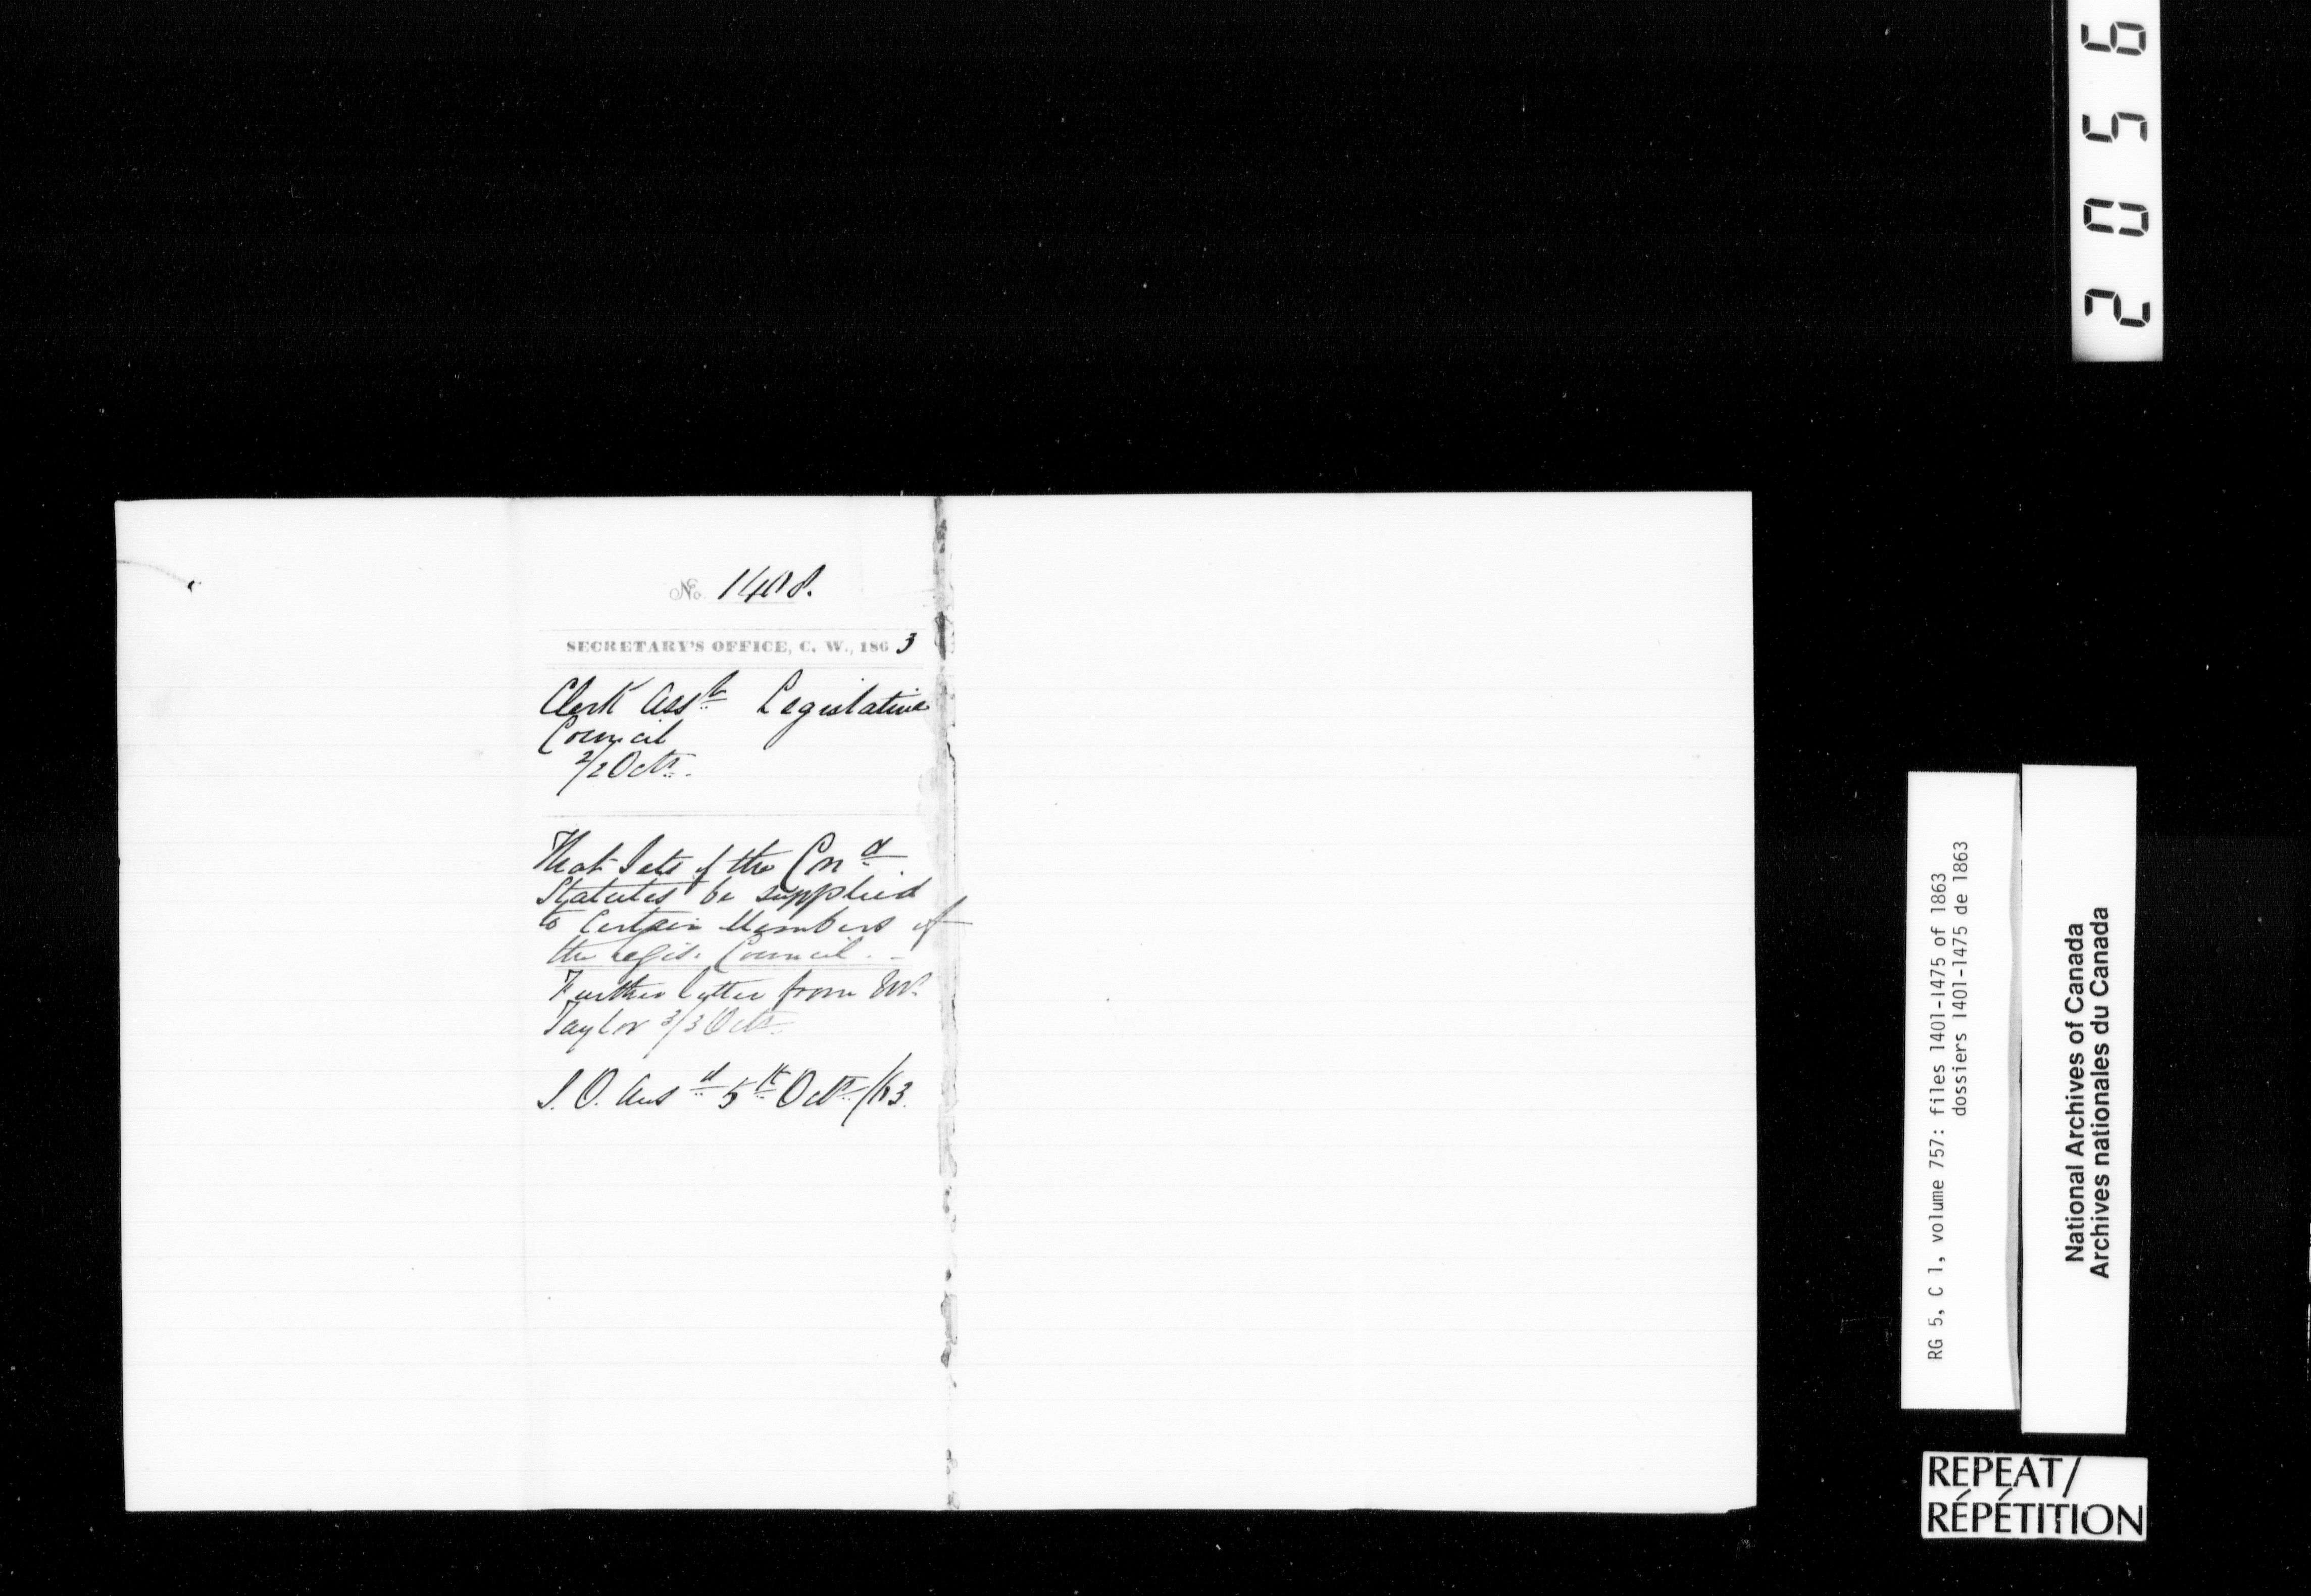 No. 1408.
SECRETARY'S OFFICE, C. W., 1863
Clerk Asst Legislative
Council
2/2 Octr.
That Sets of the Cond
Statutes be supplied
to Certain Members of
the Legis. Council. -
Further letter from Mr.
Taylor 3/3 Octr.
Ansd 5th Octr /63.
2056
RG 5, C 1, volume 757: files 1401-1475 of 1863
dossiers 1401-1475 de 1863
National Archives of Canada
Archives nationales du Canada
REPEAT/
RÉPÉTITION